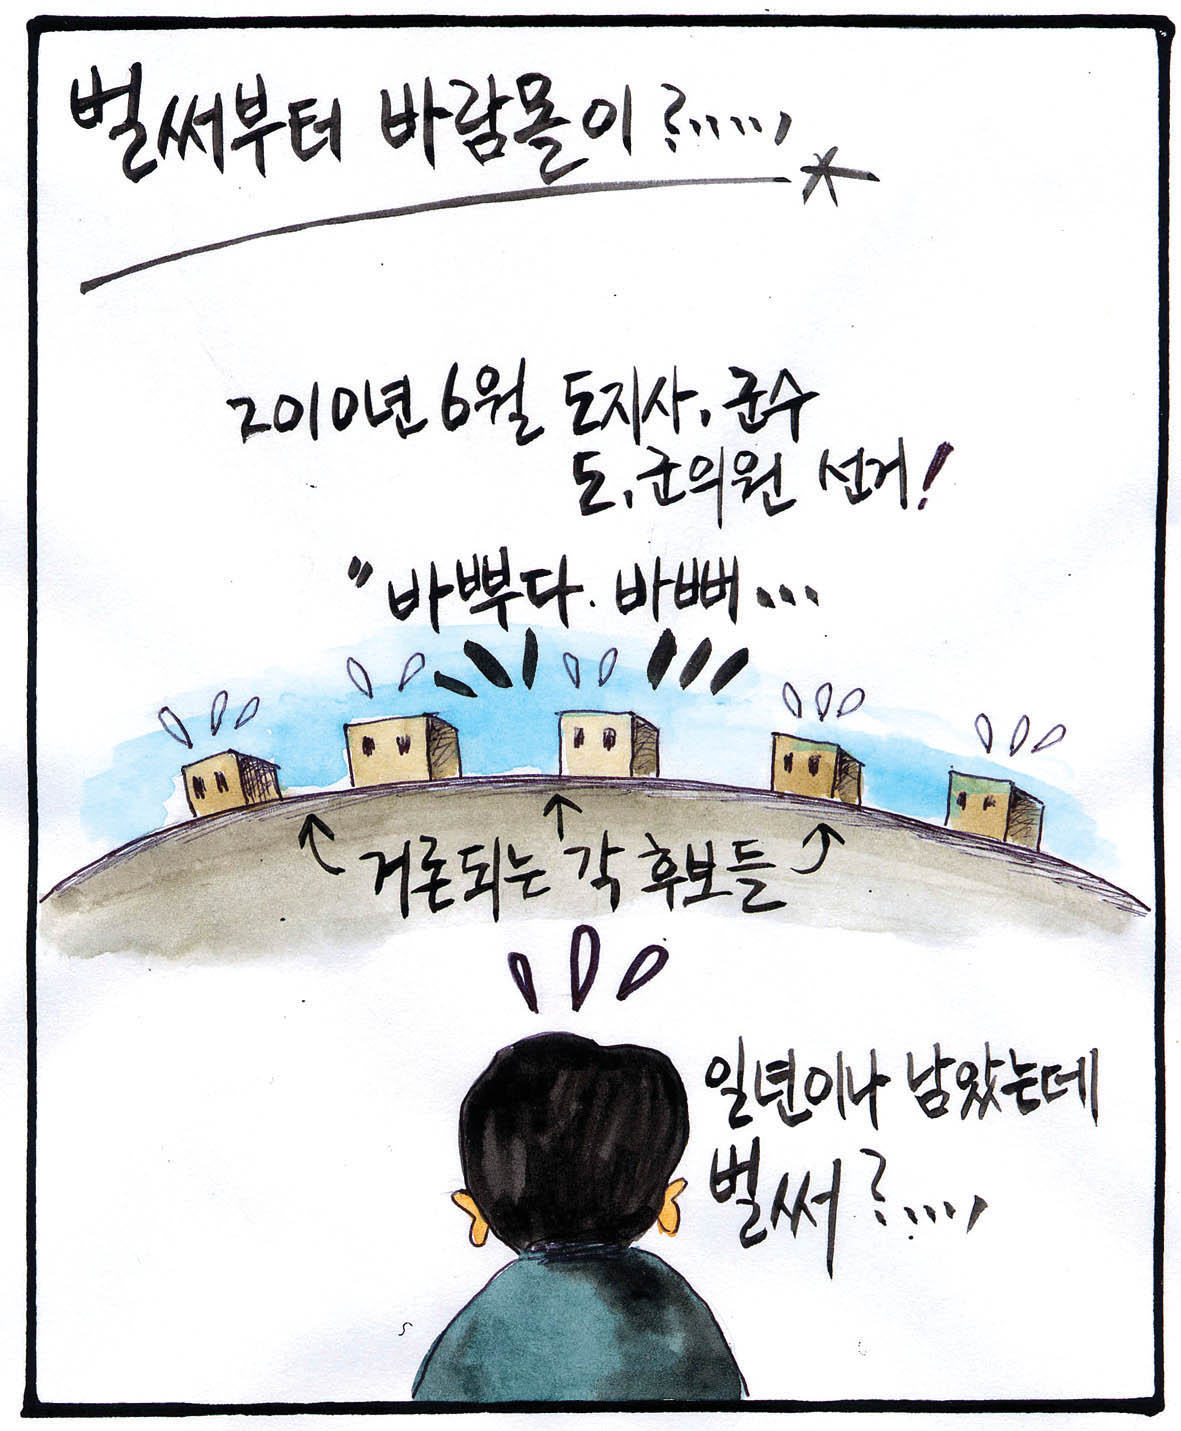 벌써부터 바람몰이?.....,
2010년 6월 도지사, 군수
도, 군의원 선거!
"바쁘다. 바뻐...
거론되는 각 후보들
일년이나 남았는데
벌써?....,